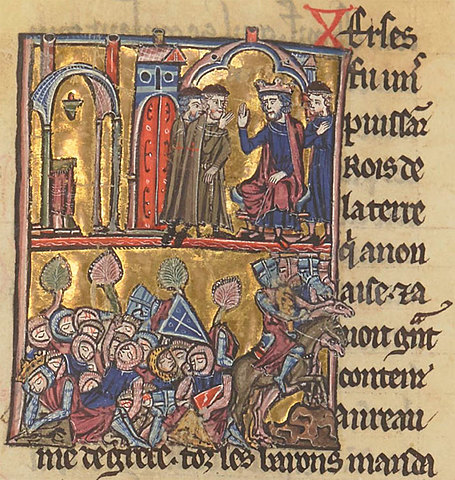 Xerses
fu un
puissãz
Rois de
la terre
q̃ a non
aise · ⁊ a
uoit gñt
contenz
au reau
me de grece · toz les barons manda